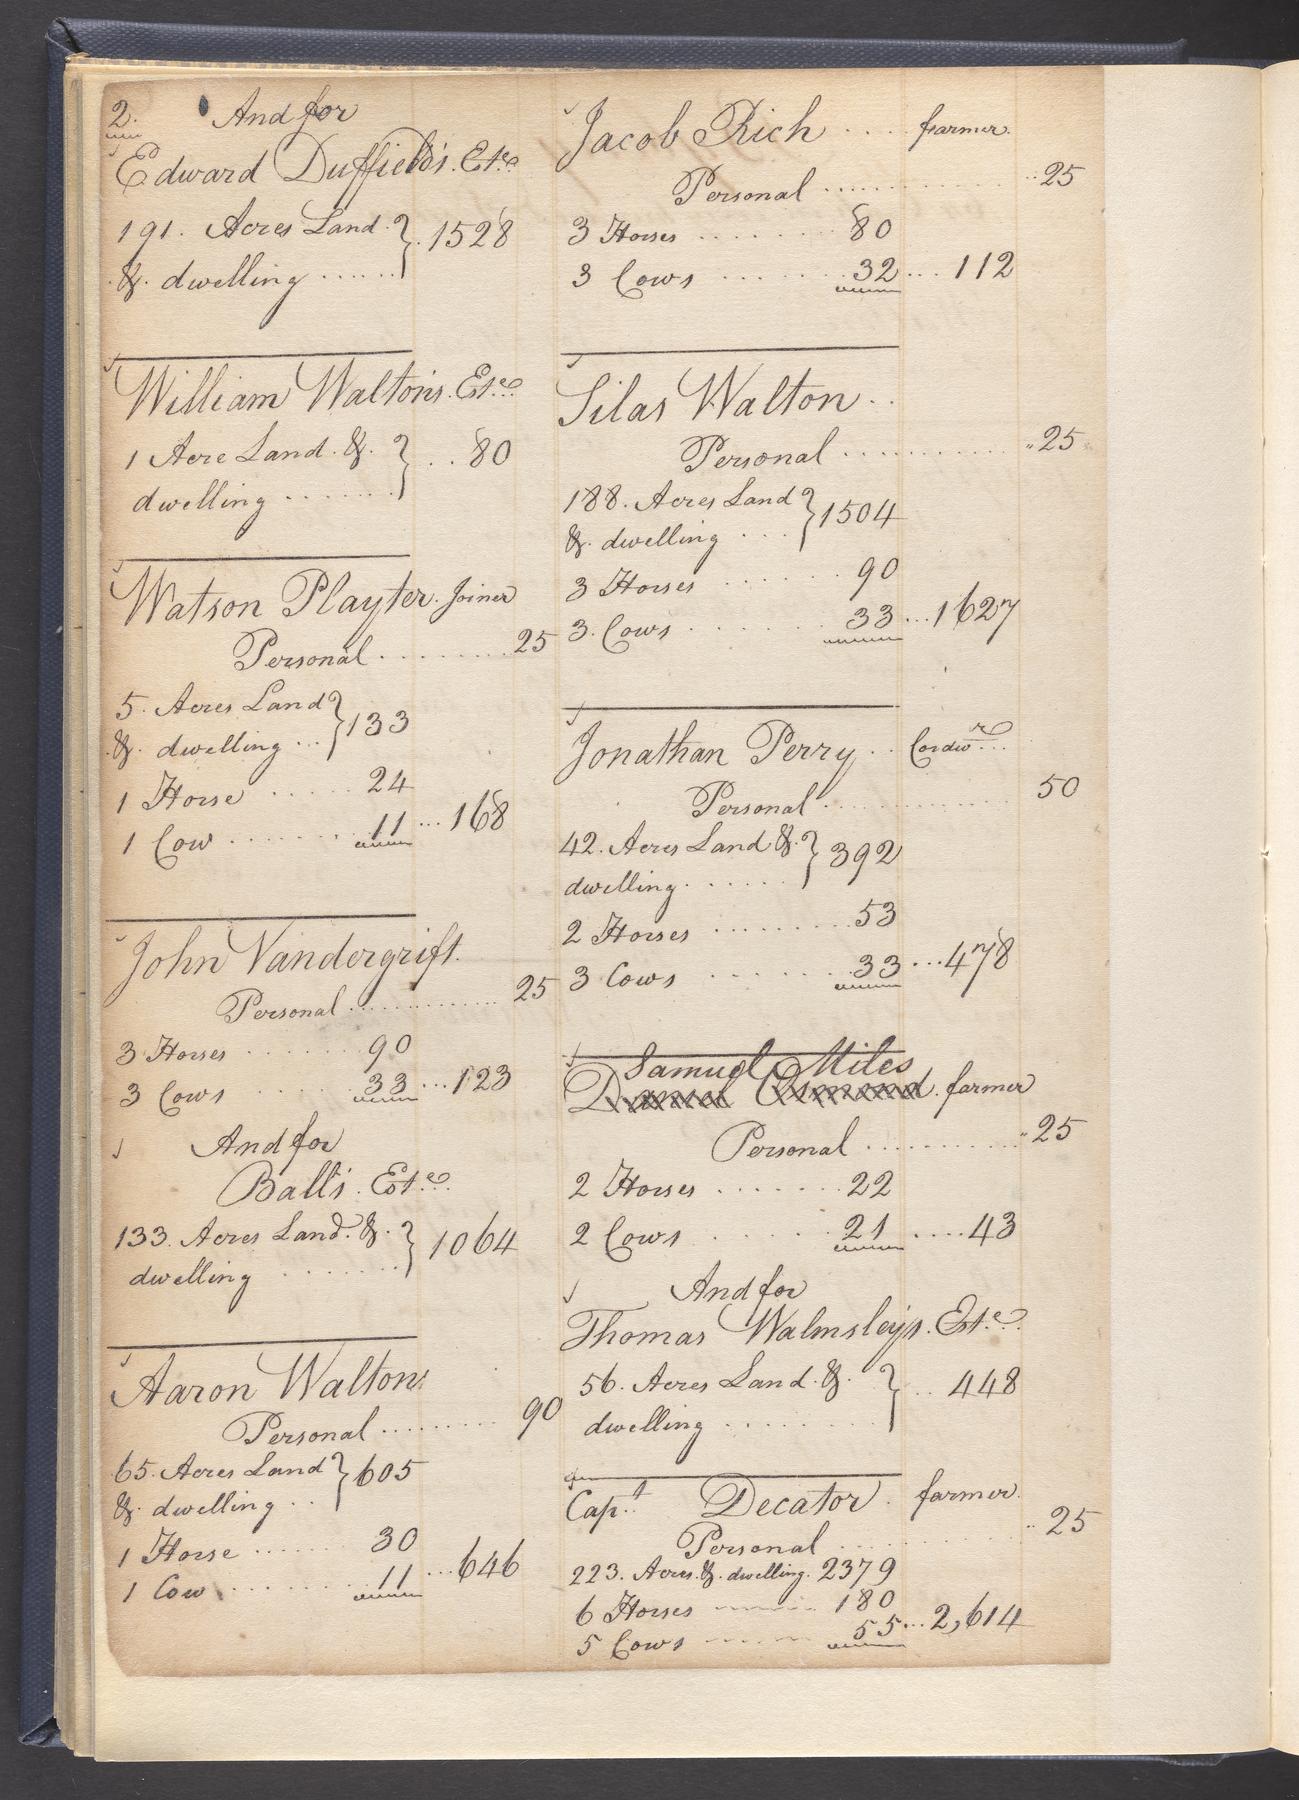 2. And for
Edward Duffield's. Este
191. Acres Land.
&. dwelling ...... 1528
William Walton's. Este
1 Acre Land. &.
dwelling ....... 80
Watson Playter. Joiner
Personal ......... 25
5. Acres Land
&. dwelling ... 133
1 Horse ..... 24
1 Cow ....... 11 ... 168
John Vandergrift.
Personal ............. 25
3 Horses ....... 90
3 Cows ...... 33 ... 123
And for
Ball's. Este.
133. Acres Land. &.
dwelling ....... 1064
Aaron Walton
Personal ......... 90
65. Acres Land
&. dwelling .. 605
1 Horse ...... 30
1 Cow ....... 11 ... 646
Jacob Rich .... farmer.
Personal ............. 25
3 Horses ....... 80
3 Cows ....... 32 ... 112
Silas Walton ..
Personal ............ 25
188. Acres Land
&. dwelling ... 1504
3 Horses ...... 90
3. Cows ....... 33 ... 1627
Jonathan Perry .. Cordwr ...
Personal ............. 50
42. Acres Land &.
dwelling ....... 392
2 Horses ......... 53
3 Cows ....... 33 ... 478
Samuel Miles
Daniel Osmond. farmer
Personal ........... 25
2 Horses ....... 22
2 Cows ...... 21 .... 43
And for
Thomas Walmsley's. Este.
56. Acres Land. &.
dwelling ........ 448
Capt. Decator. farmer.
Personal .......... 25
223. Acres. &. dwelling. 2379
6 Horses ------ 180
5 Cows ------ 55 ... 2,614